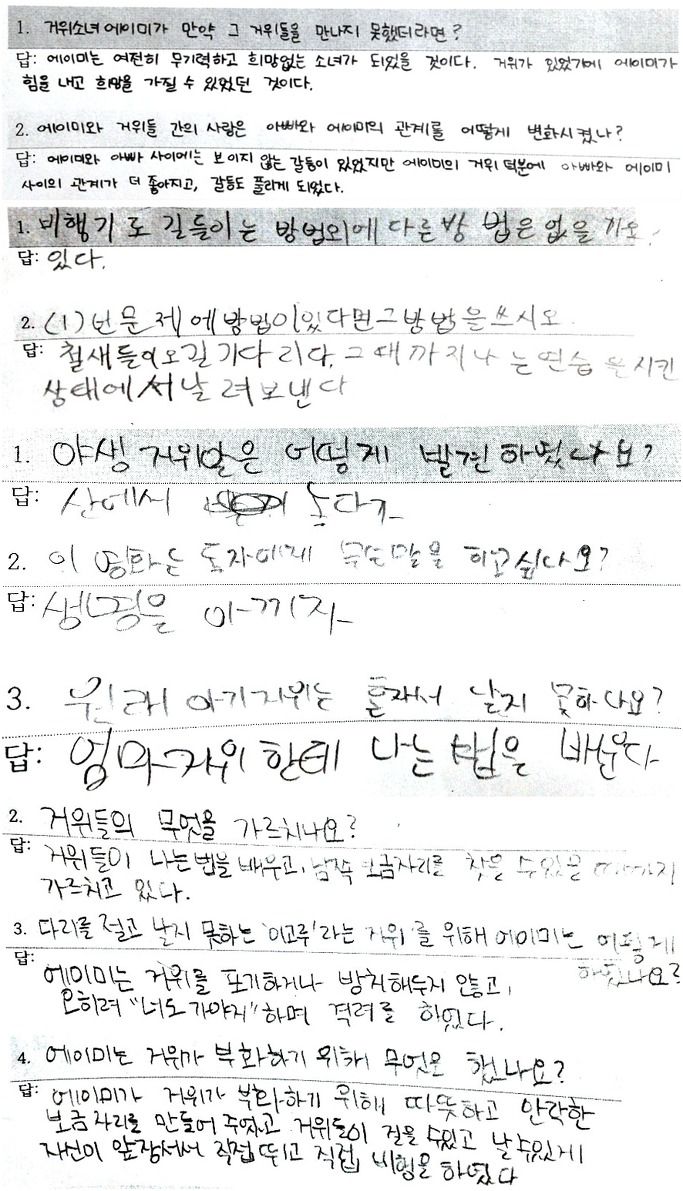 1. 거위소녀 에이미가 만약 그 거위들을 만나지 못했더라면?
답: 에이미는 여전히 무기력하고 희망없는 소녀가 되었을 것이다. 거위가 있었기에 에이미가
힘을 내고 희망을 가질 수 있었던 것이다.
2. 에이미와 거위들 간의 사랑은 아빠와 에이미의 관계를 어떻게 변화시켰나?
답: 에이미와 아빠 사이에는 보이지 않는 갈등이 있었지만 에이미의 거위 덕분에 아빠와 에이미
사이의 관계가 더 좋아지고, 갈등도 풀리게 되었다.
1. 비행기로 길들이는 방법외에 다른 방법은 없을까요.
답: 있다.
2. (1)번문제에방법이있다면그방법을쓰시오
답: 철새들이오길기다리다. 그때까지나는연습을시킨
상태에서날려보낸다
1. 야생 거위알은 어떻게 발견하였나요?
답: 산에서
2. 이 영화는 독자에게 무슨말을 하고싶나요?
답: 생명을 아끼자
3. 원래 아기거위는 혼자서 날지 못하나요?
답: 엄마거위한테 나는 법을 배운다
2. 거위들의 무엇을 가르치나요?
답: 거위들이 나는법을 배우고, 남쪽 보금자리를 찾을 수있을 때까지
가르치고 있다.
3. 다리를 절고 날지 못하는 '이고루'라는 거위를 위해 에이미는 어떻게
하였나요?
답: 에이미는 거위를 포기하거나 방치해두지 않고,
오히려 "너도 가야지" 하며 격려를 하였다.
4. 에이미는 거위가 부화하기 위해 무엇을 했나요?
답: 에이미가 거위가 부화하기 위해 따뜻하고 안락한
보금자리를 만들어 주었고 거위들이 걸을 수있고 날수있게
자신이 앞장서서 직접 뛰고 직접 비행을 하였다